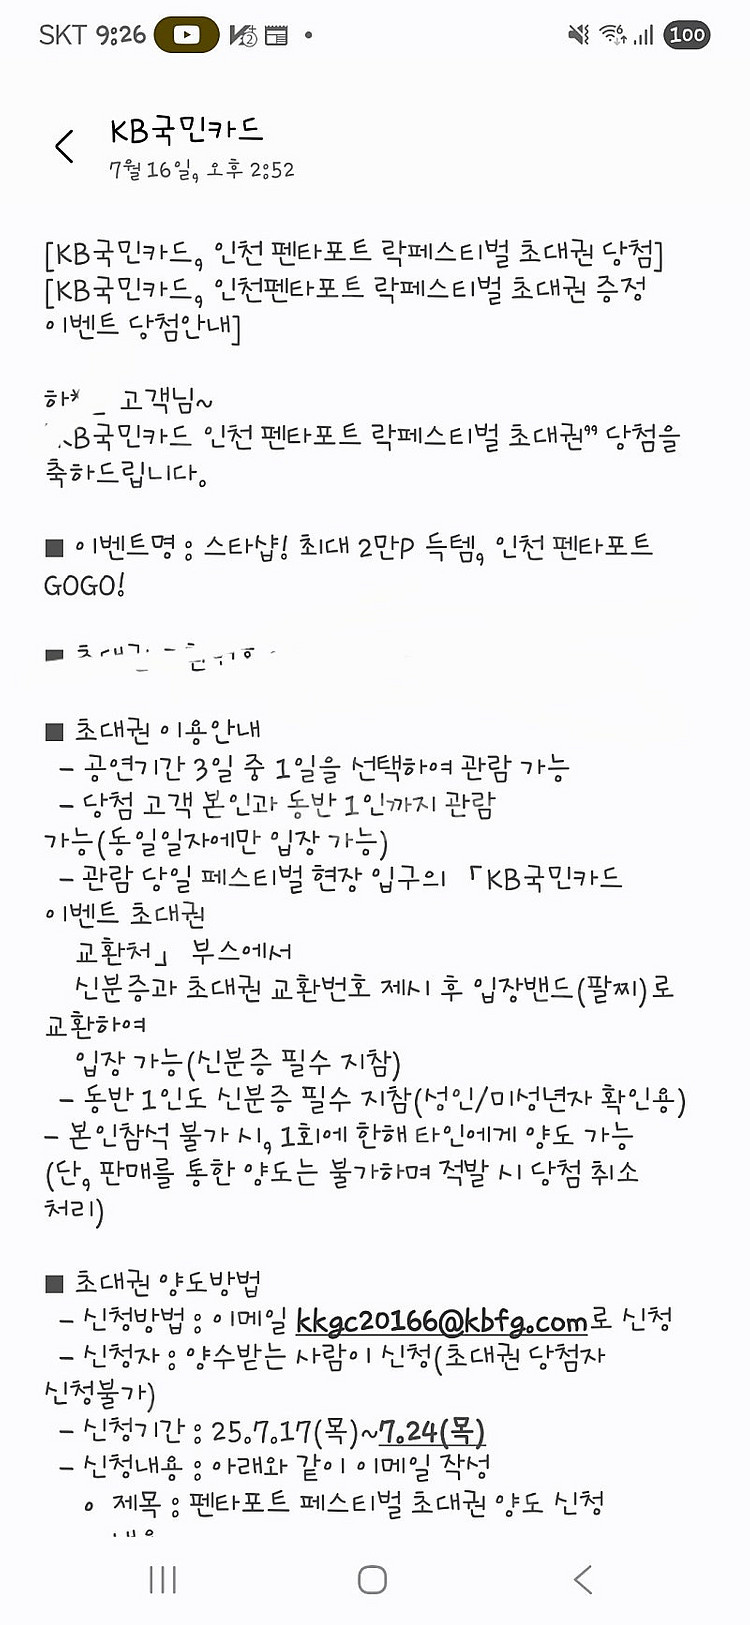 SKT 9:26
100
KB국민카드
7월 16일, 오후 2:52
[KB국민카드, 인천 펜타포트 락페스티벌 초대권 당첨]
[KB국민카드, 인천펜타포트 락페스티벌 초대권 증정
이벤트 당첨안내]
하* 고객님~
B국민카드 인천 펜타포트 락페스티벌 초대권" 당첨을
축하드립니다.
■ 이벤트명 : 스타샵! 최대 2만P 득템, 인천 펜타포트
GOGO!
■ 초대권 이용안내
- 공연기간 3일 중 1일을 선택하여 관람 가능
- 당첨 고객 본인과 동반 1인까지 관람
가능(동일일자에만 입장 가능)
- 관람 당일 페스티벌 현장 입구의 「KB국민카드
이벤트 초대권
교환처」 부스에서
신분증과 초대권 교환번호 제시 후 입장밴드(팔찌)로
교환하여
입장 가능(신분증 필수 지참)
- 동반 1인도 신분증 필수 지참(성인/미성년자 확인용)
- 본인참석 불가 시, 1회에 한해 타인에게 양도 가능
(단, 판매를 통한 양도는 불가하며 적발 시 당첨 취소
처리)
■ 초대권 양도방법
- 신청방법 : 이메일 kkgc20166@kbfg.com로 신청
- 신청자 : 양수받는 사람이 신청(초대권 당첨자
신청불가)
- 신청기간 : 25.7.17(목)~7.24(목)
- 신청내용 : 아래와 같이 이메일 작성
∘ 제목 : 펜타포트 페스티벌 초대권 양도 신청